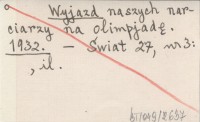 Wyjazd naszych nar-
ciarzy na olimpjadę.
1932. – Świat 27, nr 3:
, il.